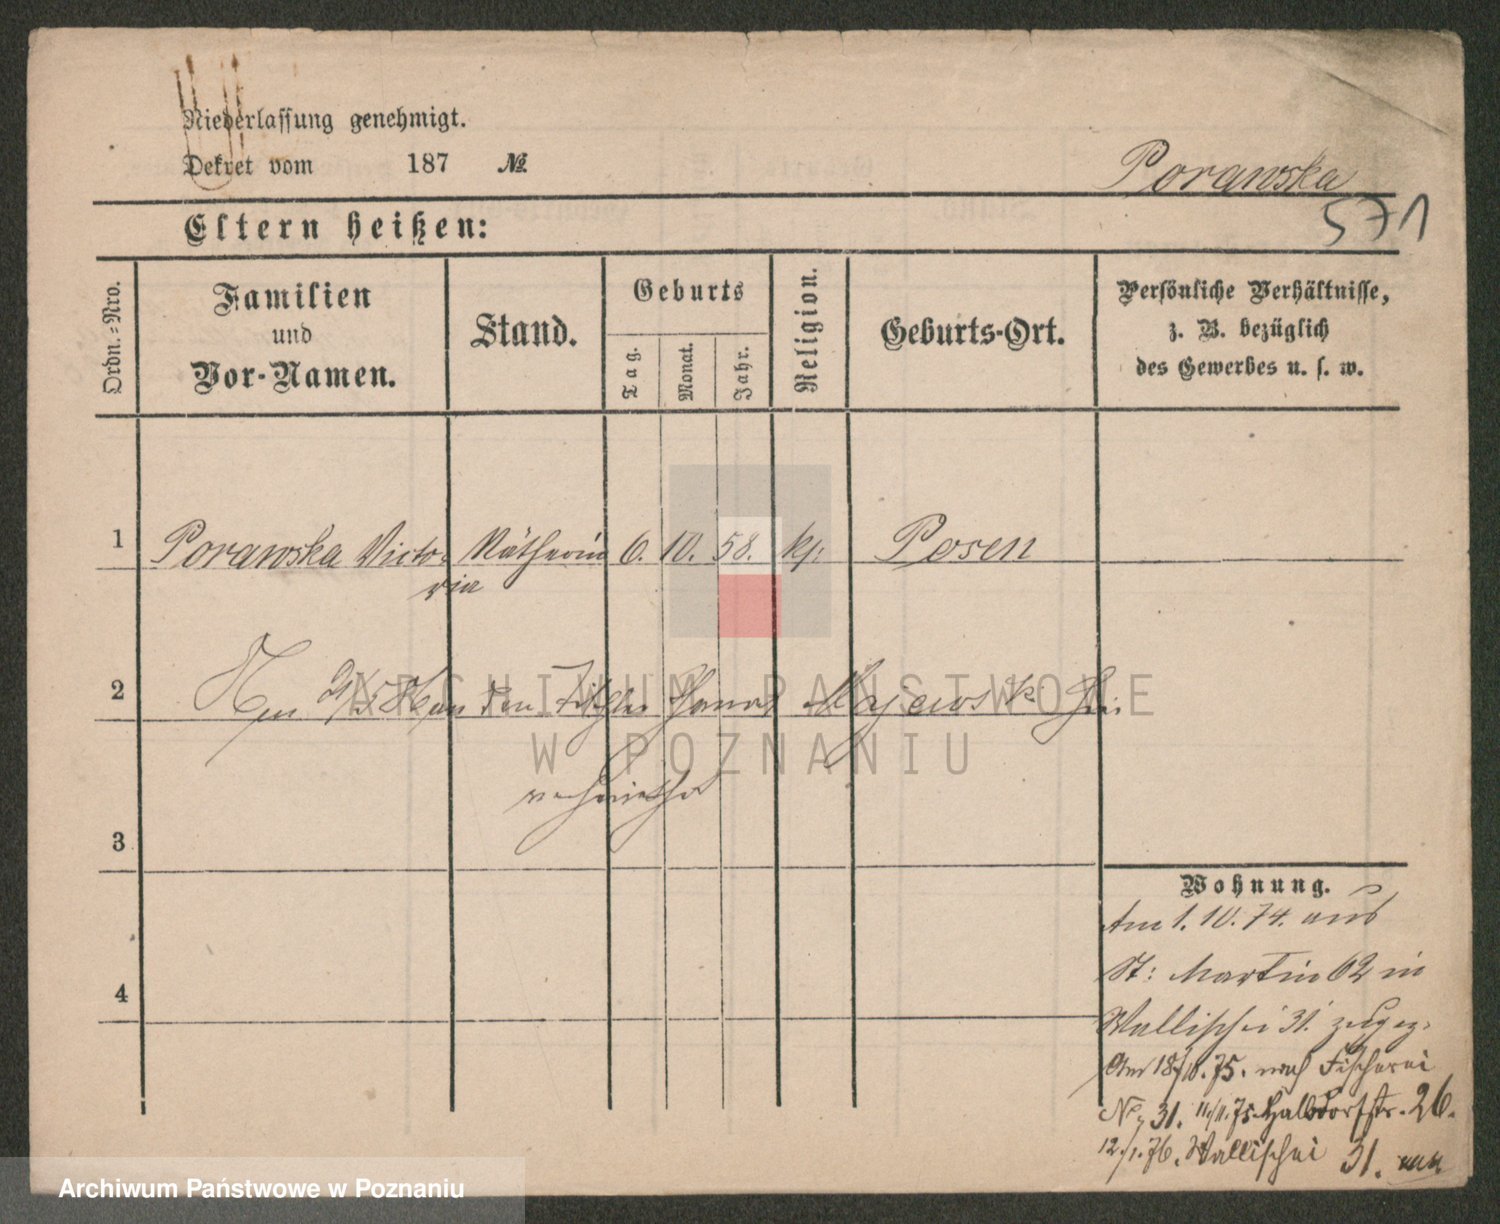 Niederlassung genehmigt.
Dekret vom 187 №
Porawska
571
Eltern heißen:
Ordn.=Nro.
Familien
und
Vor-Namen.
Stand.
Geburts
Tag.
Monat.
Jahr.
Religion.
Geburts-Ort.
Persönliche Verhältnisse,
z. B. bezüglich
des Gewerbes u. s. w.
1 Porawska Victo- Nätherin 6. 10. 58. kf: Posen
ria
2 den
3
verheirathet
4
Wohnung.
Am 1. 10. 74. aus
St: Martin 62 in
Wallischei 31. zugez.
Am 18/ 75. nach Fischerei
No 31. 11/1. 75. Halbdorfstr. 26.
12./1. 76. Wallischei 31.
ARCHIWUM PAŃSTWOWE
W POZNANIU
Archiwum Państwowe w Poznaniu